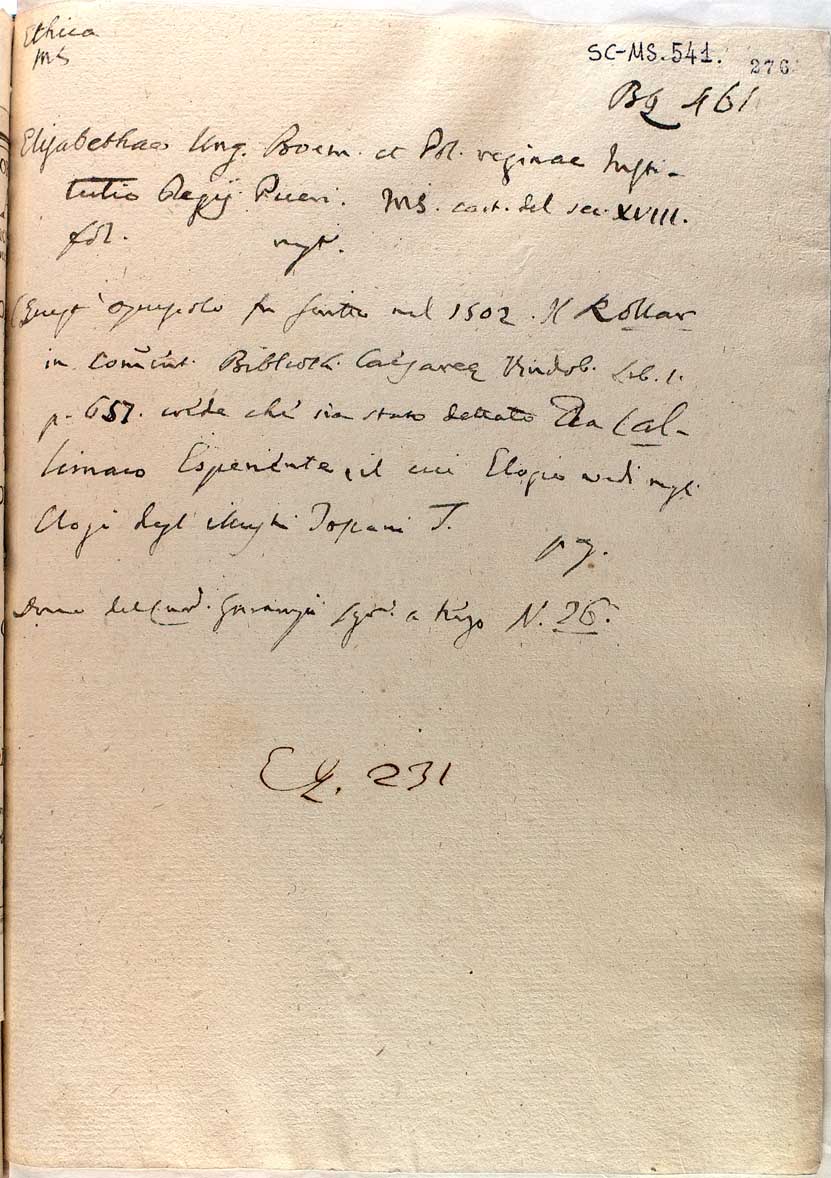 Ethica
MS
SC-MS. 541.
276
Bq 461
Elisabethae Ung. Boem. et Pol. reginae Insti-
tutio Regij Pueri. MS. cart. del sec. XVIII.
fol.
(Quest' opuscolo fu scritto nel 1502. Il Kollar
in Com̃ent. Biblioth. Caesareae Vindob. Lib. 1.
p. 657. crede che sia stato dettato da Cal-
limaco Esperiente, il cui Elogio vedi negli
Elogi degl' illustri Toscani T.
pg.
N. 26.
Eq. 231